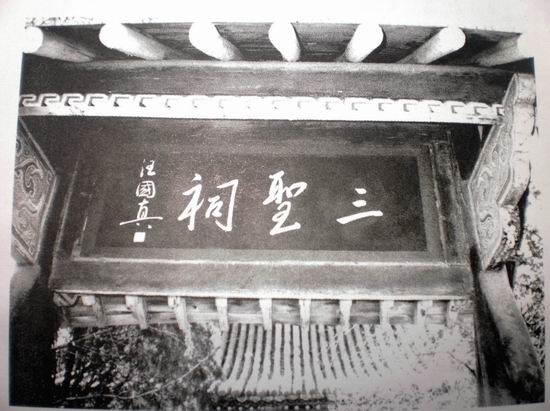 三聖祠
汪國真